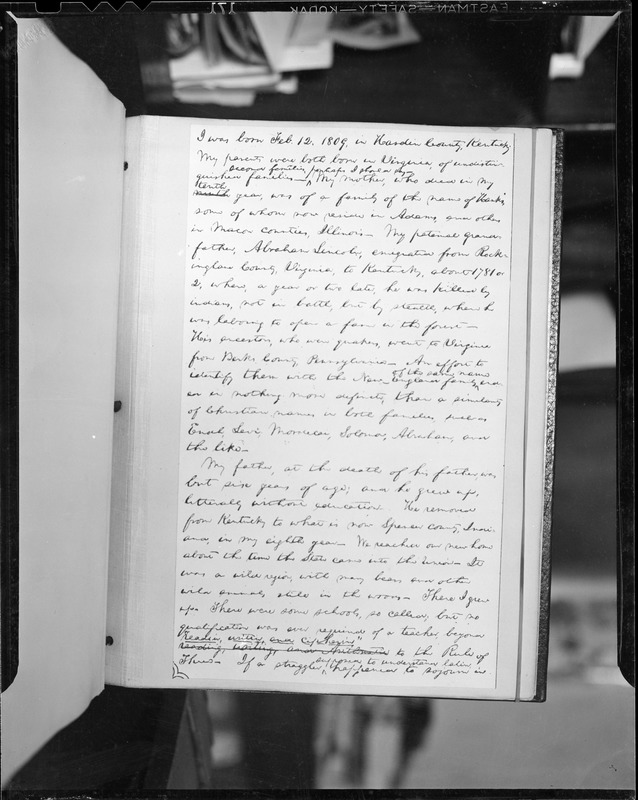 171
EASTMAN—SAFETY—KODAK
I was born Feb. 12, 1809, in Hardin County, Kentucky.
My parents were both born in Virginia, of undistin-
second families, perhaps I should say—
guished families— My mother, who died in my
tenth
ninth year, was of a family of the name of Hanks,
some of whom now reside in Adams, and others
in Macon counties, Illinois— My paternal grand-
father, Abraham Lincoln, emigrated from Rock-
ingham County, Virginia, to Kentucky, about 1781 or
2, where, a year or two later, he was killed by
indians, not in battle, but by stealth, when he
was laboring to open a farm in the forest—
His ancestors, who were quakers, went to Virginia
from Berks County, Pennsylvania— An effort to
of the same name
identify them with the New England family end-
ed in nothing more definite, than a similarity
of Christian names in both families, such as
Enoch, Levi, Mordecai, Solomon, Abraham, and
the like—
My father, at the death of his father, was
but six years of age; and he grew up,
litterally without education— He removed
from Kentucky to what is now Spencer county, Indi-
ana, in my eighth year— We reached our new home
about the time the State came into the Union— It
was a wild region, with many bears and other
wild animals, still in the woods— There I grew
up. There were some schools, so called; but no
qualification was ever required of a teacher, beyond
"readin, writin, and cipherin"
reading, writing, and Arithmetic to the Rule of
supposed to understand latin,
Three— If a straggler happened to sojourn in